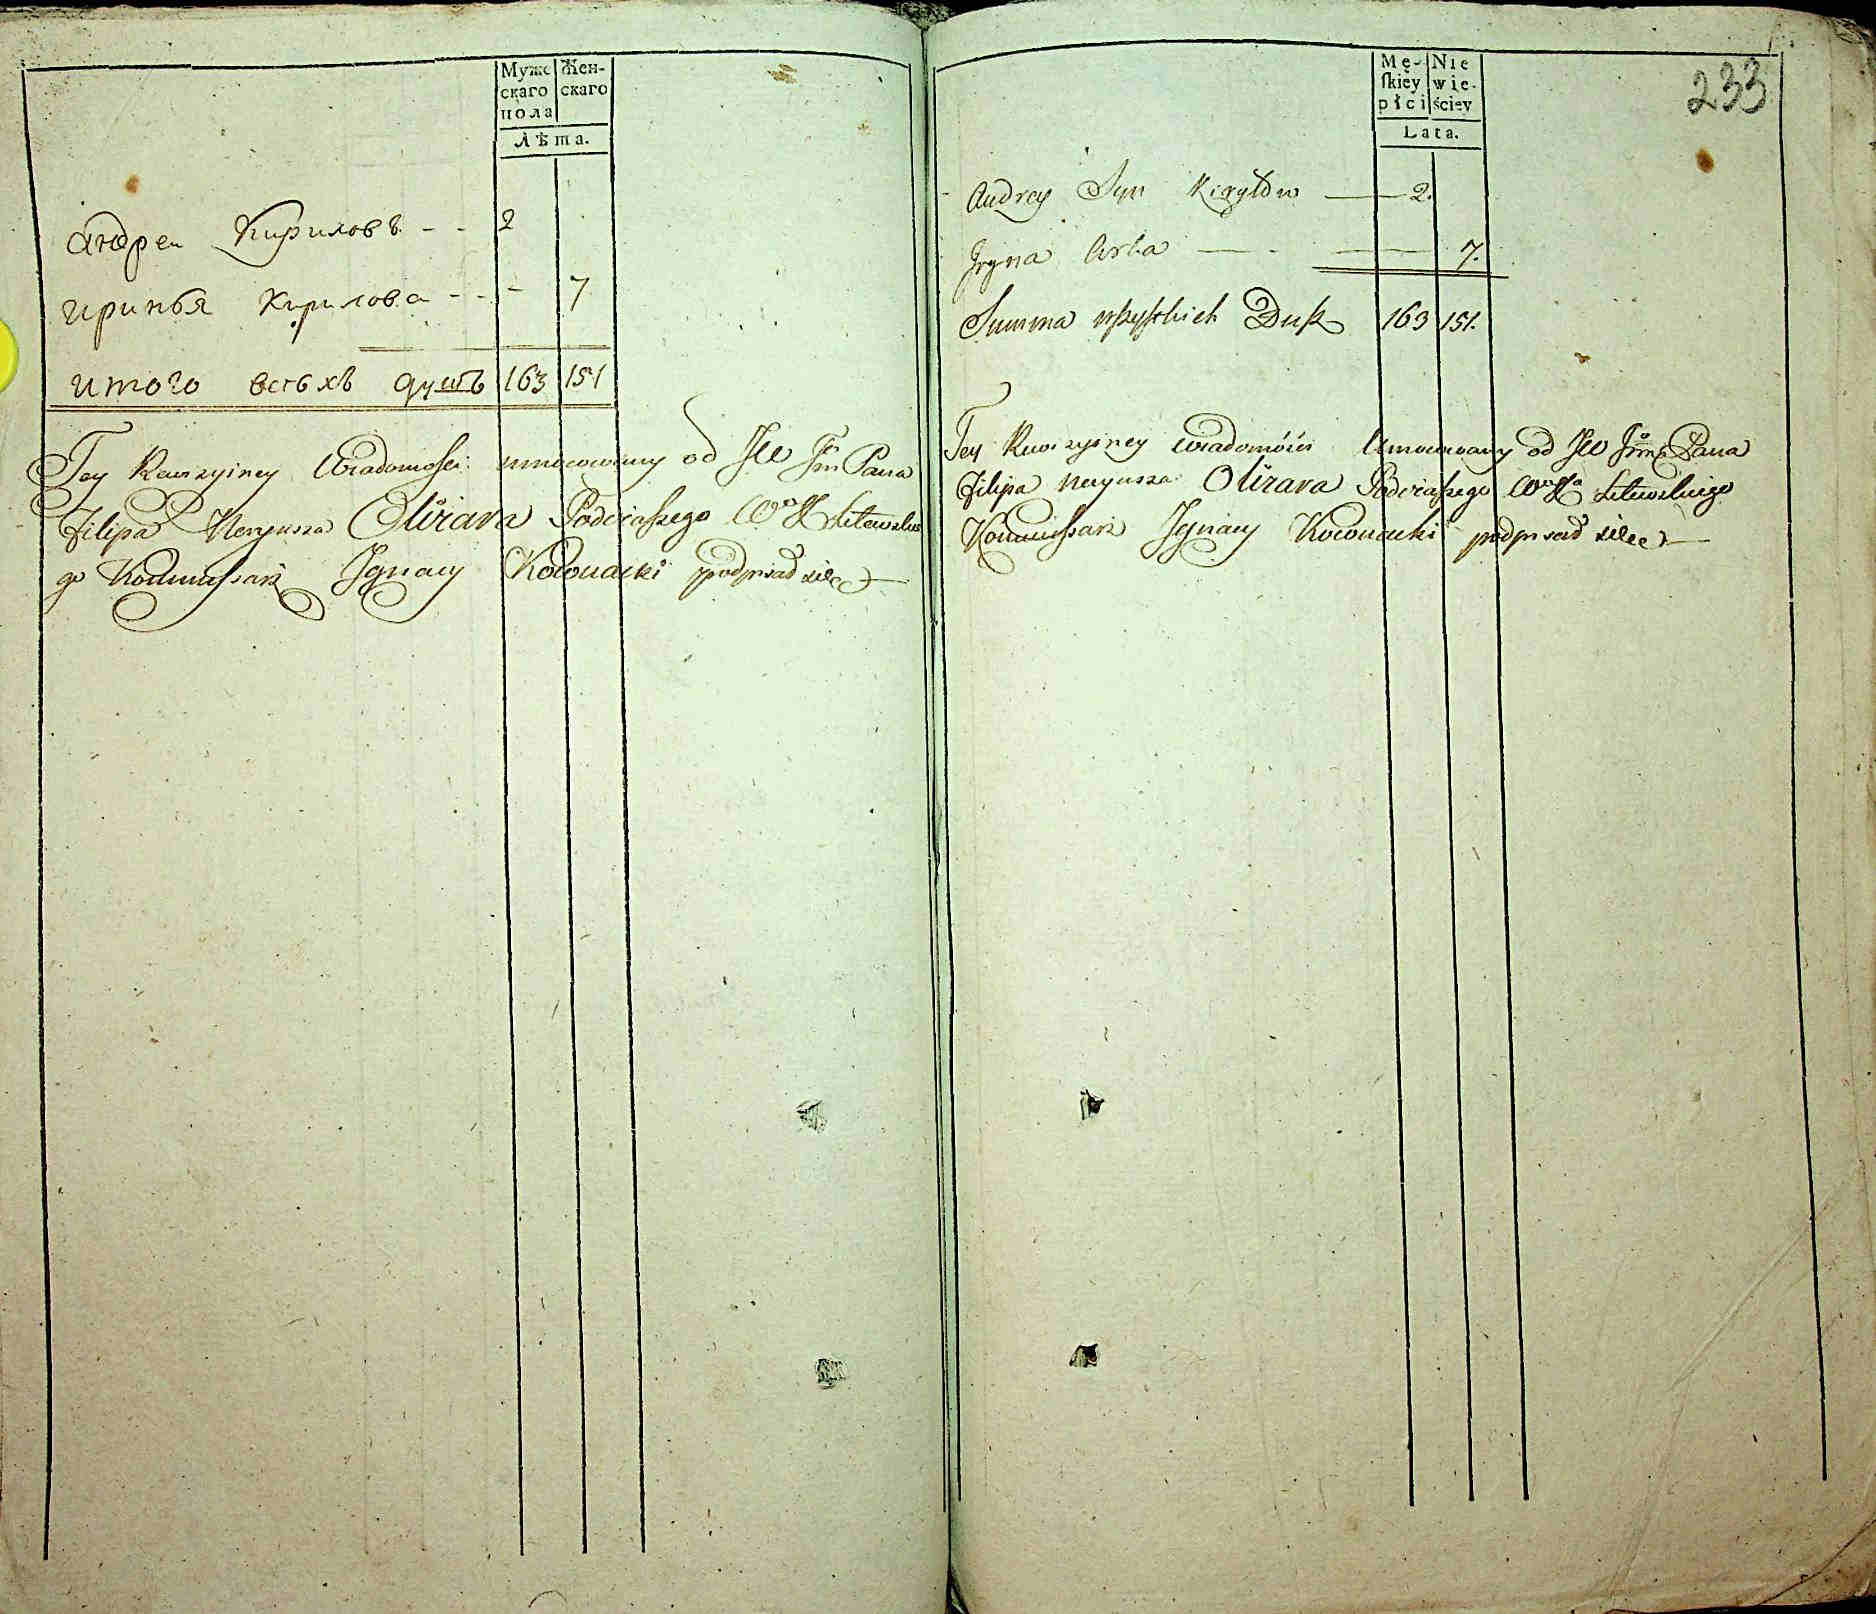 Муже
скаго
пола
Жен-
скаго
Лѣта.
Андреи Кириловъ 2
Иринья Кирилова 7
итого всѣхъ душъ 163 151
Tey Rewizyiney Wiadomości umocowany od JW Jm Pana
Filipa Neryusza Olizara Podczaszego WoXo Litewskie
go Kommissarz Ignacy podpisał się
233
Mę-
skiey
płci
Nie
wie-
ściey
Lata.
Andrey Syn Kiryłow 2.
Jryna Corka 7.
Summa wszystkich Dusz 163 151.
Tey Rewizyiney Wiadomości Umocowany od JW Jmm Pana
Filipa Neryusza Olizara Podczaszego Litewskiego
Kommissarz Ignacy podpisał się